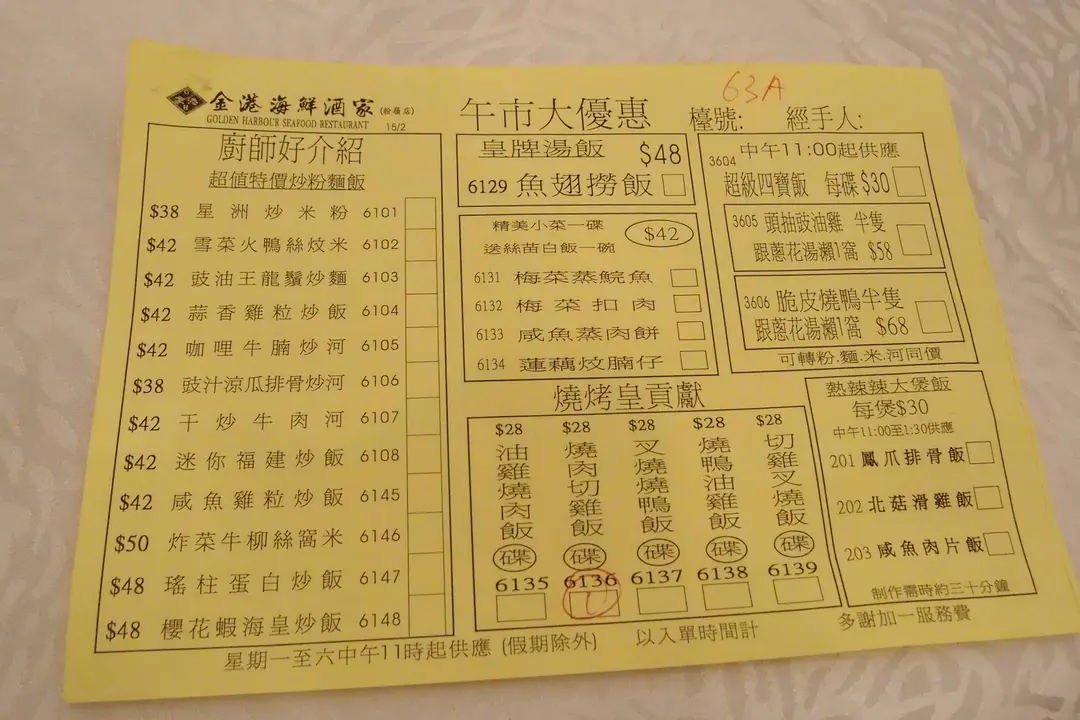 金港海鮮酒家(粉嶺店)
GOLDEN HARBOUR SEAFOOD RESTAURANT
15/2
午市大優惠
63A
檯號: 經手人:
廚師好介紹
超值特價炒粉麵飯
$38 星洲炒米粉 6101
$42 雪菜火鴨絲炆米 6102
$42 豉油王龍鬚炒麵 6103
$42 蒜香雞粒炒飯 6104
$42 咖哩牛腩炒河 6105
$38 豉汁涼瓜排骨炒河 6106
$42 干炒牛肉河 6107
$42 迷你福建炒飯 6108
$42 咸魚雞粒炒飯 6145
$50 炸菜牛柳絲窩米 6146
$48 瑤柱蛋白炒飯 6147
$48 櫻花蝦海皇炒飯 6148
皇牌湯飯 $48
6129 魚翅撈飯
精美小菜一碟
送絲苗白飯一碗
$42
6131 梅菜蒸鯇魚
6132 梅菜扣肉
6133 咸魚蒸肉餅
6134 蓮藕炆腩仔
3604 中午11:00起供應
超級四寶飯 每碟$30
3605 頭抽豉油雞 半隻
跟蔥花湯瀨1窩 $58
3606 脆皮燒鴨半隻
跟蔥花湯瀨1窩 $68
可轉粉.麵.米.河同價
燒烤皇貢獻
$28 油雞燒肉飯 碟 6135
$28 燒肉切雞飯 碟 6136 1
$28 叉燒燒鴨飯 碟 6137
$28 燒鴨油雞飯 碟 6138
$28 切雞叉燒飯 碟 6139
熱辣辣大煲飯
每煲$30
中午11:00至1:30供應
201 鳳爪排骨飯
202 北菇滑雞飯
203 咸魚肉片飯
制作需時約三十分鐘
星期一至六中午11時起供應 (假期除外) 以入單時間計 多謝加一服務費